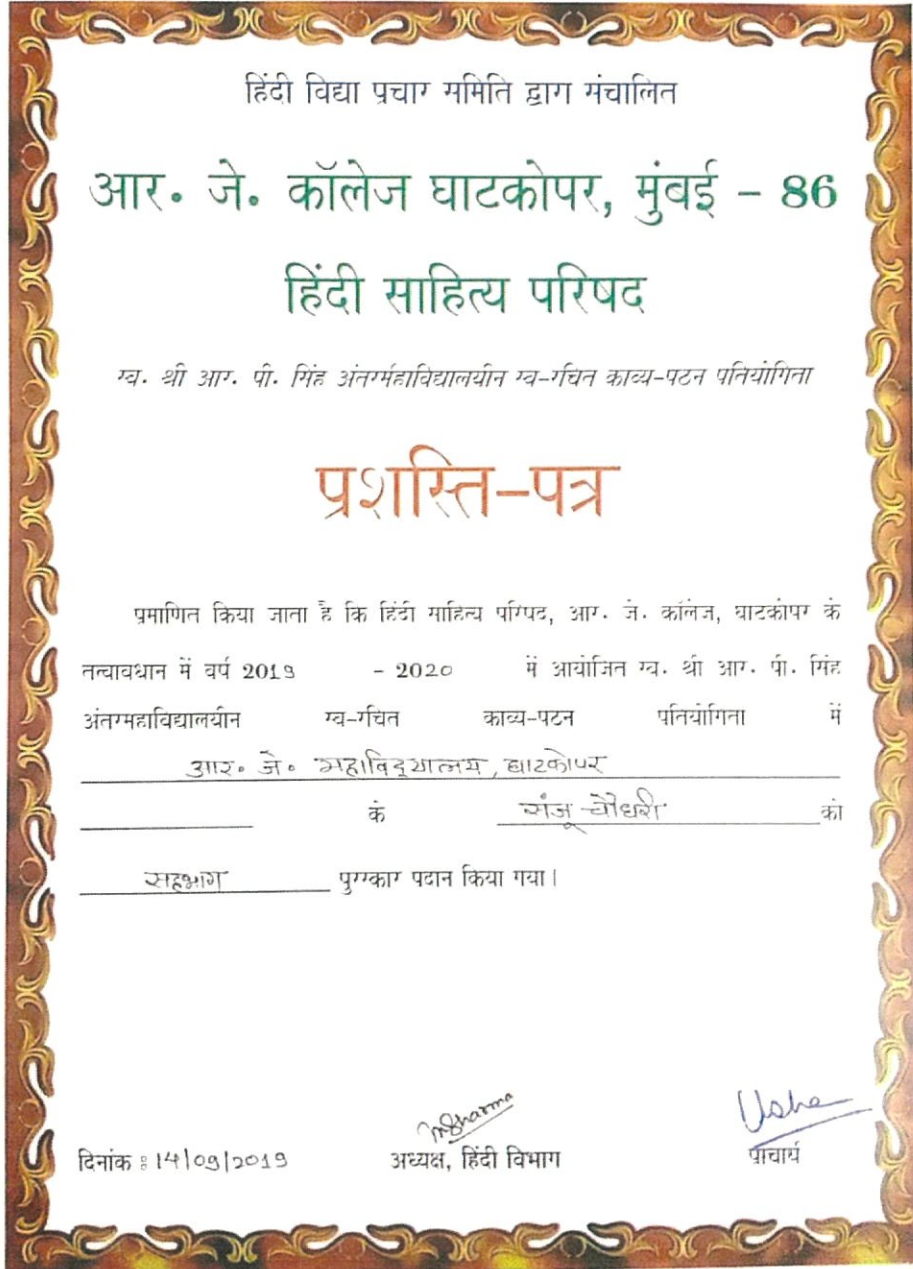 हिंदी विद्या प्रचार समिति द्वारा संचालित
आर. जे. कॉलेज घाटकोपर, मुंबई - 86
हिंदी साहित्य परिषद
स्व. श्री आर. पी. सिंह अंतर्महाविद्यालयीन स्व-रचित काव्य-पठन प्रतियोगिता
प्रशस्ति-पत्र
प्रमाणित किया जाता है कि हिंदी साहित्य परिषद, आर. जे. कॉलेज, घाटकोपर के
तत्वावधान में वर्ष 2019 - 2020 में आयोजित स्व. श्री आर. पी. सिंह
अंतरमहाविद्यालयीन स्व-रचित काव्य-पठन प्रतियोगिता में
आर. जे. महाविद्यालय, घाटकोपर
के संजू चौधरी को
सहभाग पुरस्कार प्रदान किया गया।
MSharma
Usha
दिनांक : 14/09/2019 अध्यक्ष, हिंदी विभाग प्राचार्य